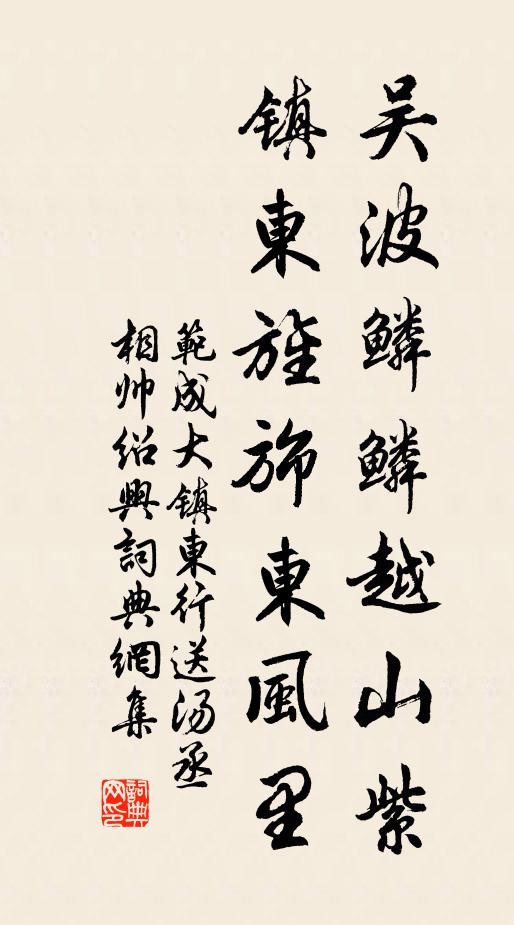 吴波鳞鳞越山紫
镇東旌斾東風里
範成大镇東行送汤丞
相帅绍興詞典網集
詞典网印